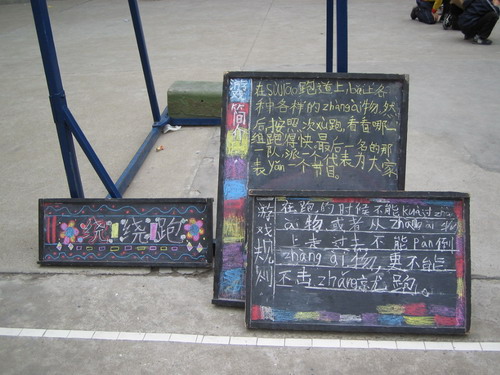 绕绕跑
游戏简介
在 跑道上,bǎi上各
种各种的zhàng ài物,然
后,按照次xù跑,看看哪一
组跑得快,最后一名的那
一队,派一个代表为大家
表yǎn一个节目。
游戏规则
在跑的时候不能kuà过zhà
ài物或者从zhàng ài物
上走过去不能pān倒
zhàng ài物,更不能
跑。